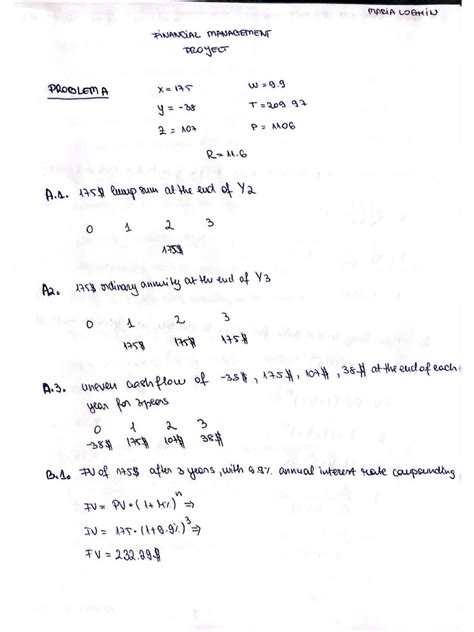 MARIA LOGHIN
FINANCIAL MANAGEMENT
PROYECT
PROBLEM A
X = 175 W = 9.9
Y = -38 T = 209.97
Z = 107 P = 1106
R = 11.6
A.1. 175$ lump sum at the end of Y2
0 1 2 3
175$
A2. 175$ ordinary annuity at the end of Y3
0 1 2 3
175$ 175$ 175$
A.3. uneven cashflow of -38$, 175$, 107$, 38$ at the end of each
year for 3 years
0 1 2 3
-38$ 175$ 107$ 38$
B.1. FV of 175$ after 3 years, with 9.9% annual interest rate coupounding
FV = PV · (1 + r%)ⁿ ⇒
FV = 175 · (1 + 9.9%)³ ⇒
FV = 232.29$